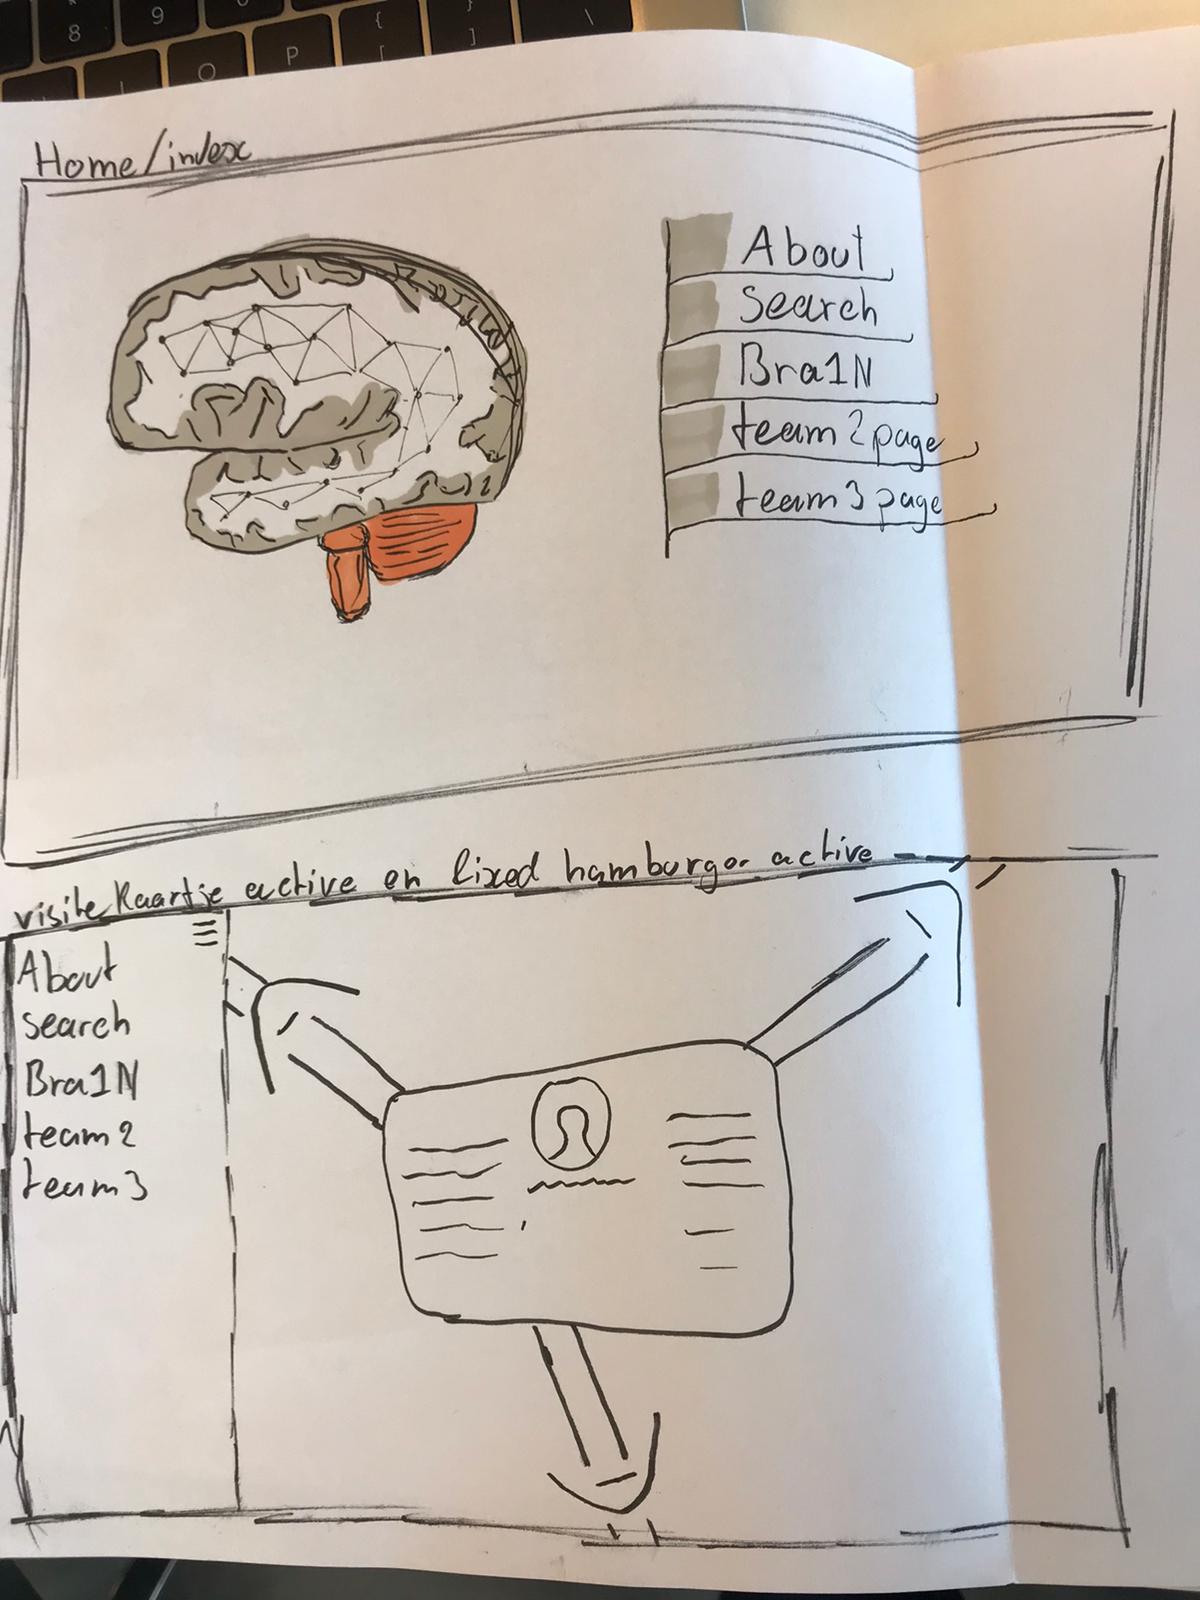 8
9
{
[
}
]
\
O
P
Home/index
About
Search
Bra1N
team 2 page
team 3 page
visitekaartje active en fixed hamburger active
About
search
Bra1N
team 2
team 3